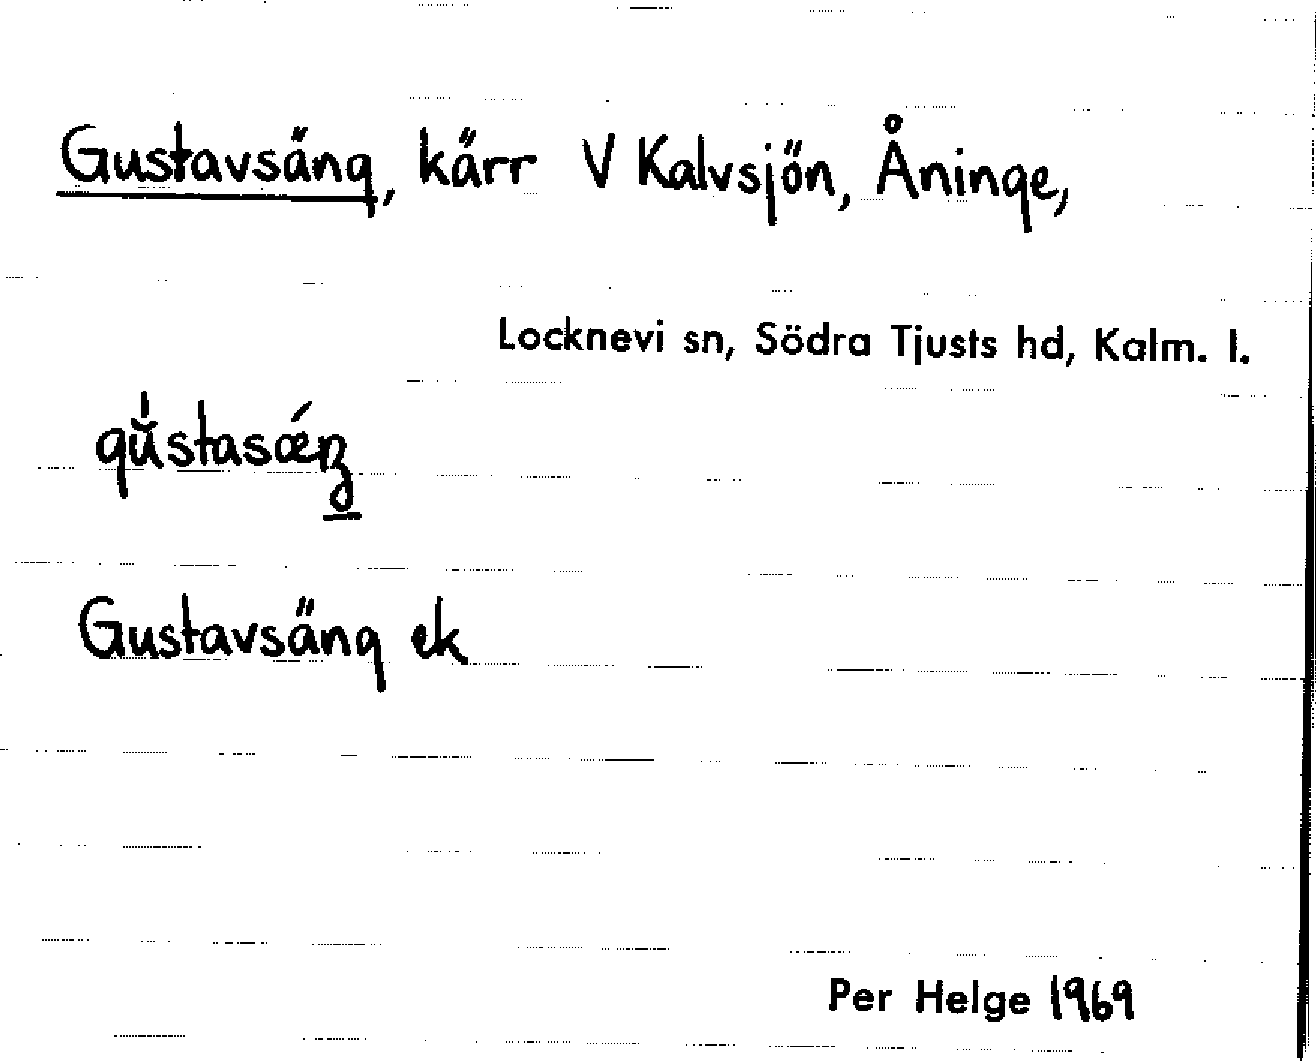 Gustavsäng, kärr V Kalvsjön, Åninge,
Locknevi sn, Södra Tjusts hd, Kalm. l.
Gustavsäng ek
Per Helge 1969